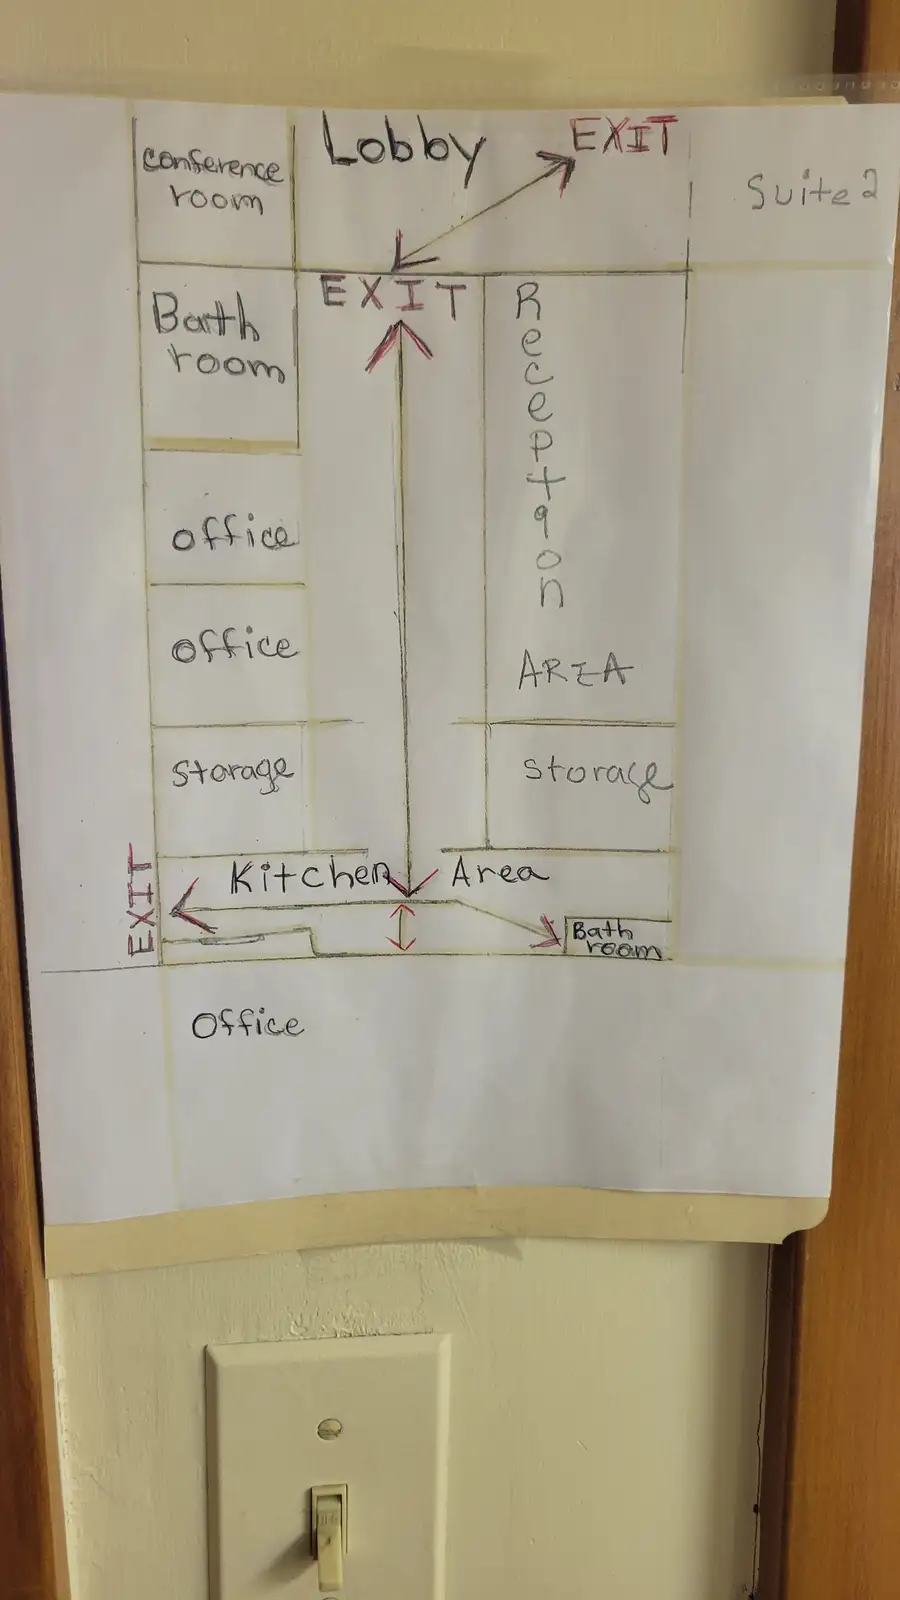 Lobby
EXIT
Conference
room
Suite 2
EXIT
Bath
room
Reception
AREA
office
office
Storage
Storage
Kitchen Area
EXIT
Bath
room
Office